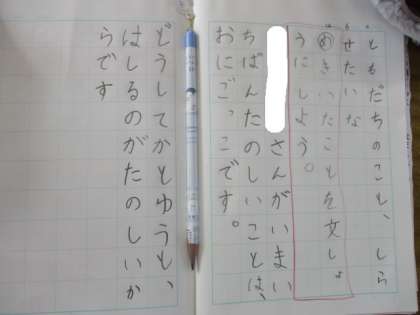 ともだちのこと、しら
せたいな
めきいたことを文しょ
うにしよう。
さんがいまい
ちばんたのしいことは、
おにごっこです。
どうしてかとゆうと、
はしるのがたのしいか
らです